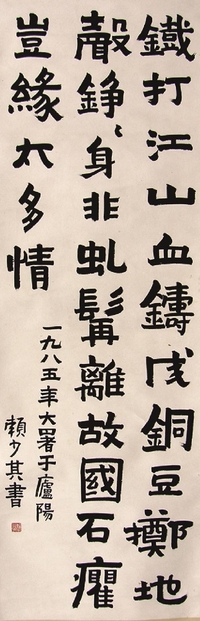 鐵打江山血鑄成銅豆擲地
聲錚〻身非虬髯離故國石癯
豈緣太多情
一九八五年大署于廬陽
賴少其書